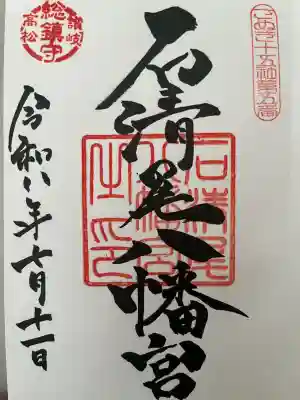 さぬき十五社第五番
石清尾八幡宮
石清尾八幡宮之印
讃岐
総鎮守
高松
令和八年七月十一日